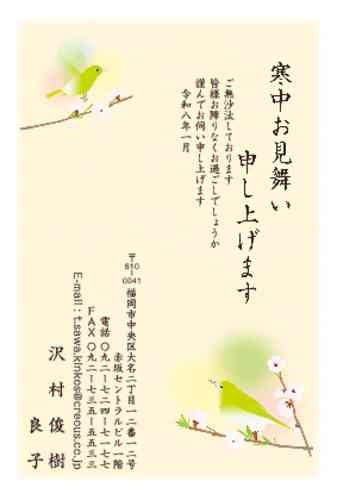 寒中お見舞い
申し上げます
ご無沙汰しております
皆様お障りなくお過ごしでしょうか
謹んでお伺い申し上げます
令和八年一月
〒810-0041
福岡市中央区大名二丁目一二番一二号
赤坂セントラルビル一階
電話 〇九二-七二四-七一七七
FAX 〇九二-七三五-五五三三
E-mail : t.sawa.kinkos@creous.co.jp
沢村俊樹
良子